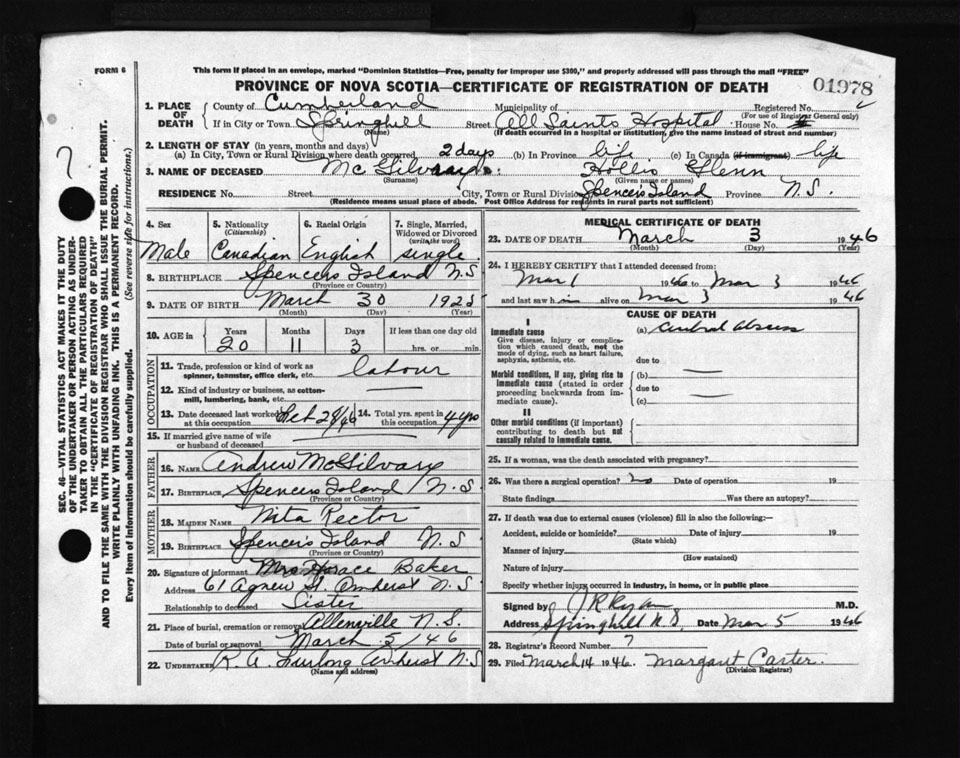 FORM 6
This form if placed in an envelope, marked "Dominion Statistics—Free, penalty for improper use $300," and properly addressed will pass through the mail "FREE"
PROVINCE OF NOVA SCOTIA—CERTIFICATE OF REGISTRATION OF DEATH
01978
1. PLACE OF DEATH { County of Cumberland Municipality of Registered No.
(For use of Registrar General only)
If in City or Town Springhill Street All Saints Hospital House No.
(Name) (If death occurred in a hospital or institution, give the name instead of street and number)
2. LENGTH OF STAY (in years, months and days)
(a) In City, Town or Rural Division where death occurred 2 days (b) In Province life (c) In Canada (if immigrant) life
3. NAME OF DECEASED McGilvary: Hollis Glenn
(Surname) (Given name or names)
RESIDENCE No. Street City, Town or Rural Division Spencer's Island Province N.S.
(Residence means usual place of abode. Post Office Address for residents in rural parts not sufficient)
SEC. 46—VITAL STATISTICS ACT MAKES IT THE DUTY
OF THE UNDERTAKER OR PERSON ACTING AS UNDER-
TAKER TO OBTAIN ALL THE PARTICULARS REQUIRED
IN THE "CERTIFICATE OF REGISTRATION OF DEATH"
AND TO FILE THE SAME WITH THE DIVISION REGISTRAR WHO SHALL ISSUE THE BURIAL PERMIT.
WRITE PLAINLY WITH UNFADING INK. THIS IS A PERMANENT RECORD.
Every item of information should be carefully supplied. (See reverse side for instructions.)
4. Sex 5. Nationality (Citizenship) 6. Racial Origin 7. Single, Married, Widowed or Divorced (write the word)
Male Canadian English single.
8. BIRTHPLACE Spencers Island N S
(Province or Country)
9. DATE OF BIRTH March 30 1925
(Month) (Day) (Year)
10. AGE in { Years Months Days If less than one day old
20 11 3 hrs. or min.
OCCUPATION
11. Trade, profession or kind of work as spinner, teamster, office clerk, etc. labour
12. Kind of industry or business, as cotton-mill, lumbering, bank, etc.
13. Date deceased last worked at this occupation 14. Total yrs. spent in this occupation 4 yrs
15. If married give name of wife or husband of deceased
FATHER
16. NAME Andrew McGilvary
17. BIRTHPLACE Spencers Island N.S.
(Province or Country)
MOTHER
18. MAIDEN NAME Nita Rector
19. BIRTHPLACE Spencer's Island N.S
(Province or Country)
20. Signature of informant Mrs Horace Baker
Address 61 Agnew St. Amherst N.S
Relationship to deceased Sister
21. Place of burial, cremation or removal Allenville N.S.
Date of burial or removal March 5/46
22. UNDERTAKER R. A. Furlong Amherst N S
(Name and address)
MEDICAL CERTIFICATE OF DEATH
23. DATE OF DEATH March 3 1946
(Month) (Day) (Year)
24. I HEREBY CERTIFY that I attended deceased from:
Mar 1 1946 to Mar 3 1946
and last saw him alive on Mar 3 1946
CAUSE OF DEATH
I
Immediate cause (a) Cerebral Abscess
Give disease, injury or complication which caused death, not the mode of dying, such as heart failure, asphyxia, asthenia, etc. due to
Morbid conditions, if any, giving rise to immediate cause (stated in order proceeding backwards from immediate cause). (b)
due to
(c)
II
Other morbid conditions (if important) contributing to death but not causally related to immediate cause.
25. If a woman, was the death associated with pregnancy?
26. Was there a surgical operation? no Date of operation 19
State findings Was there an autopsy?
27. If death was due to external causes (violence) fill in also the following:—
Accident, suicide or homicide? Date of injury 19
(State which)
Manner of injury
(How sustained)
Nature of injury
Specify whether injury occurred in industry, in home, or in public place
Signed by J R Ryan M.D.
Address Springhill N.S. Date Mar 5 1946
28. Registrar's Record Number 7
29. Filed March 14 1946. Margaret Carter.
(Division Registrar)